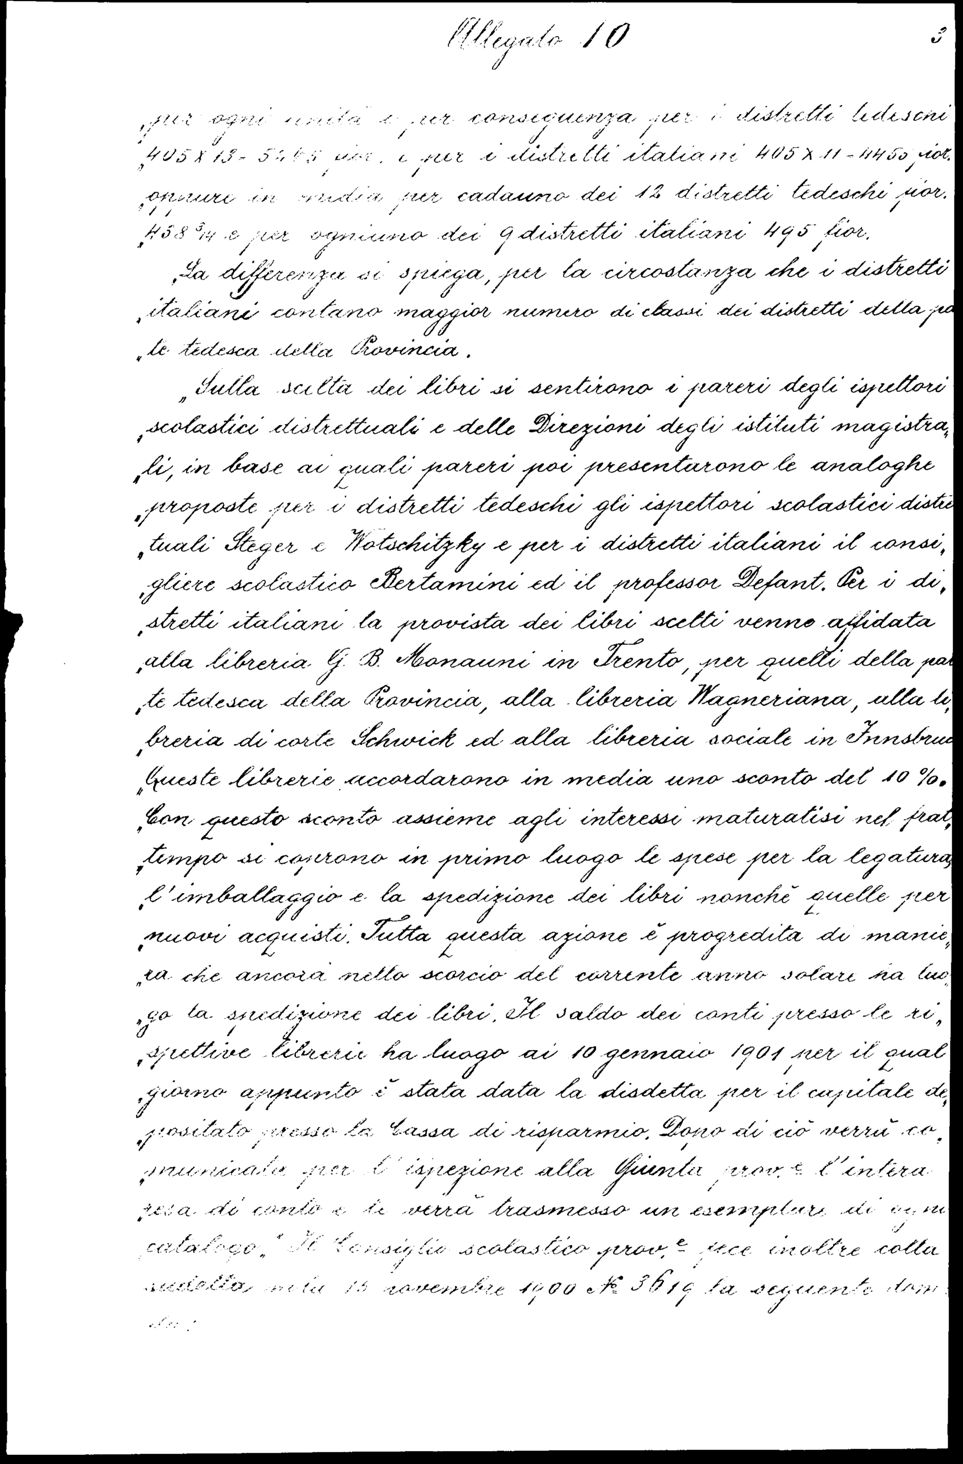 Allegato 10 3
„per ogni unità e per conseguenza per i distretti tedeschi
„405 X 13 - 5265 fior. e per i distretti italiani 405 X 11 - 4455 fior.
„oppure in media per cadauno dei 12 distretti tedeschi fior.
„438 3/4 e per ogniuno dei 9 distretti italiani 495 fior.
„La differenza si spiega, per la circostanza che i distretti
„italiani contano maggior numero di classi dei distretti della pa
„te tedesca della Provincia.
„Sulla scelta dei libri si sentirono i pareri degli ispettori
„scolastici distrettuali e delle Direzioni degli istituti magistra„
„li, in base ai quali pareri poi presentarono le analoghe
„proposte per i distretti tedeschi gli ispettori scolastici distre
„tuali Steger e Wotschitzky e per i distretti italiani il consi„
„gliere scolastico Bertamini ed il professor Defant. Per i di„
„stretti italiani la provista dei libri scelti venne affidata
„alla libreria G. B. Monauni in Trento, per quelli della par
„te tedesca della Provincia, alla libreria Wagneriana, alla li„
„breria di corte Schwick ed alla libreria sociale in Innsbruc
„Queste librerie accordarono in media uno sconto del 10 %.
„Con questo sconto assieme agli interessi maturatisi nel frat„
„tempo si coprono in primo luogo le spese per la legatura,
„l'imballaggio e la spedizione dei libri nonchè quelle per
„nuovi acquisti. Tutta questa azione è progredita di manie„
„ra che ancora nello scorcio del corrente anno solare ha luo„
„go la spedizione dei libri. Il saldo dei conti presso le ri„
„spettive librerie ha luogo ai 10 gennaio 1901 per il qual
„giorno appunto è stata data la disdetta per il capitale de„
„positato presso la Cassa di risparmio. Dopo di ciò verrà co„
„municata per l'ispezione alla Giunta prov.e l'intera
„resa di conto e le verrà trasmesso un esemplare di ogni
catalogo." Il Consiglio scolastico prov.e fece inoltre colla
sudetta nota 15 novembre 1900 No 3619 la seguente dom